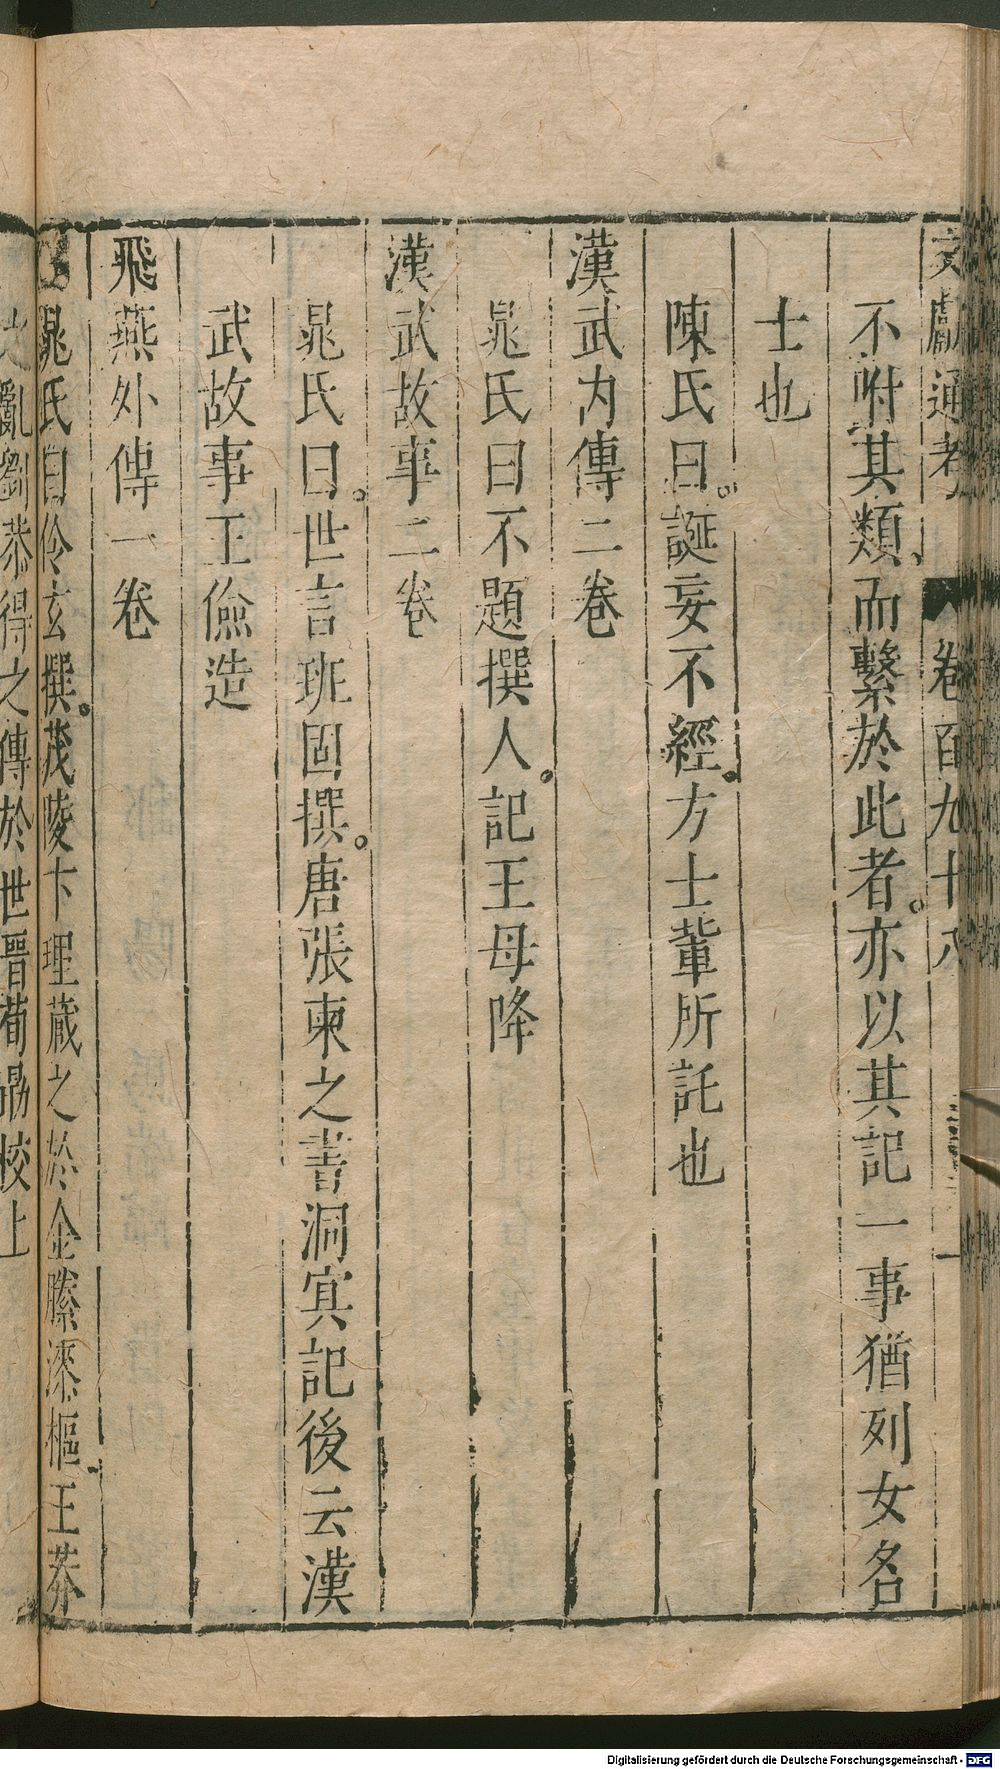 文獻通考 卷百九十八
不附其類、而繫於此者。亦以其記一事猶列女名
士也
陳氏曰。誕妄不經。方士輩所託也
漢武内傳二卷
晁氏曰不題撰人。記王母降
漢武故事二卷
晁氏曰。世言班固撰。唐張柬之書洞冥記後云漢
武故事王儉造
飛燕外傳一卷
晁氏曰伶玄撰。茂陵卞理藏之於金縢漆樻、王莽
之亂劉恭得之傳於世晉荀勗校上
Digitalisierung gefördert durch die Deutsche Forschungsgemeinschaft - DFG